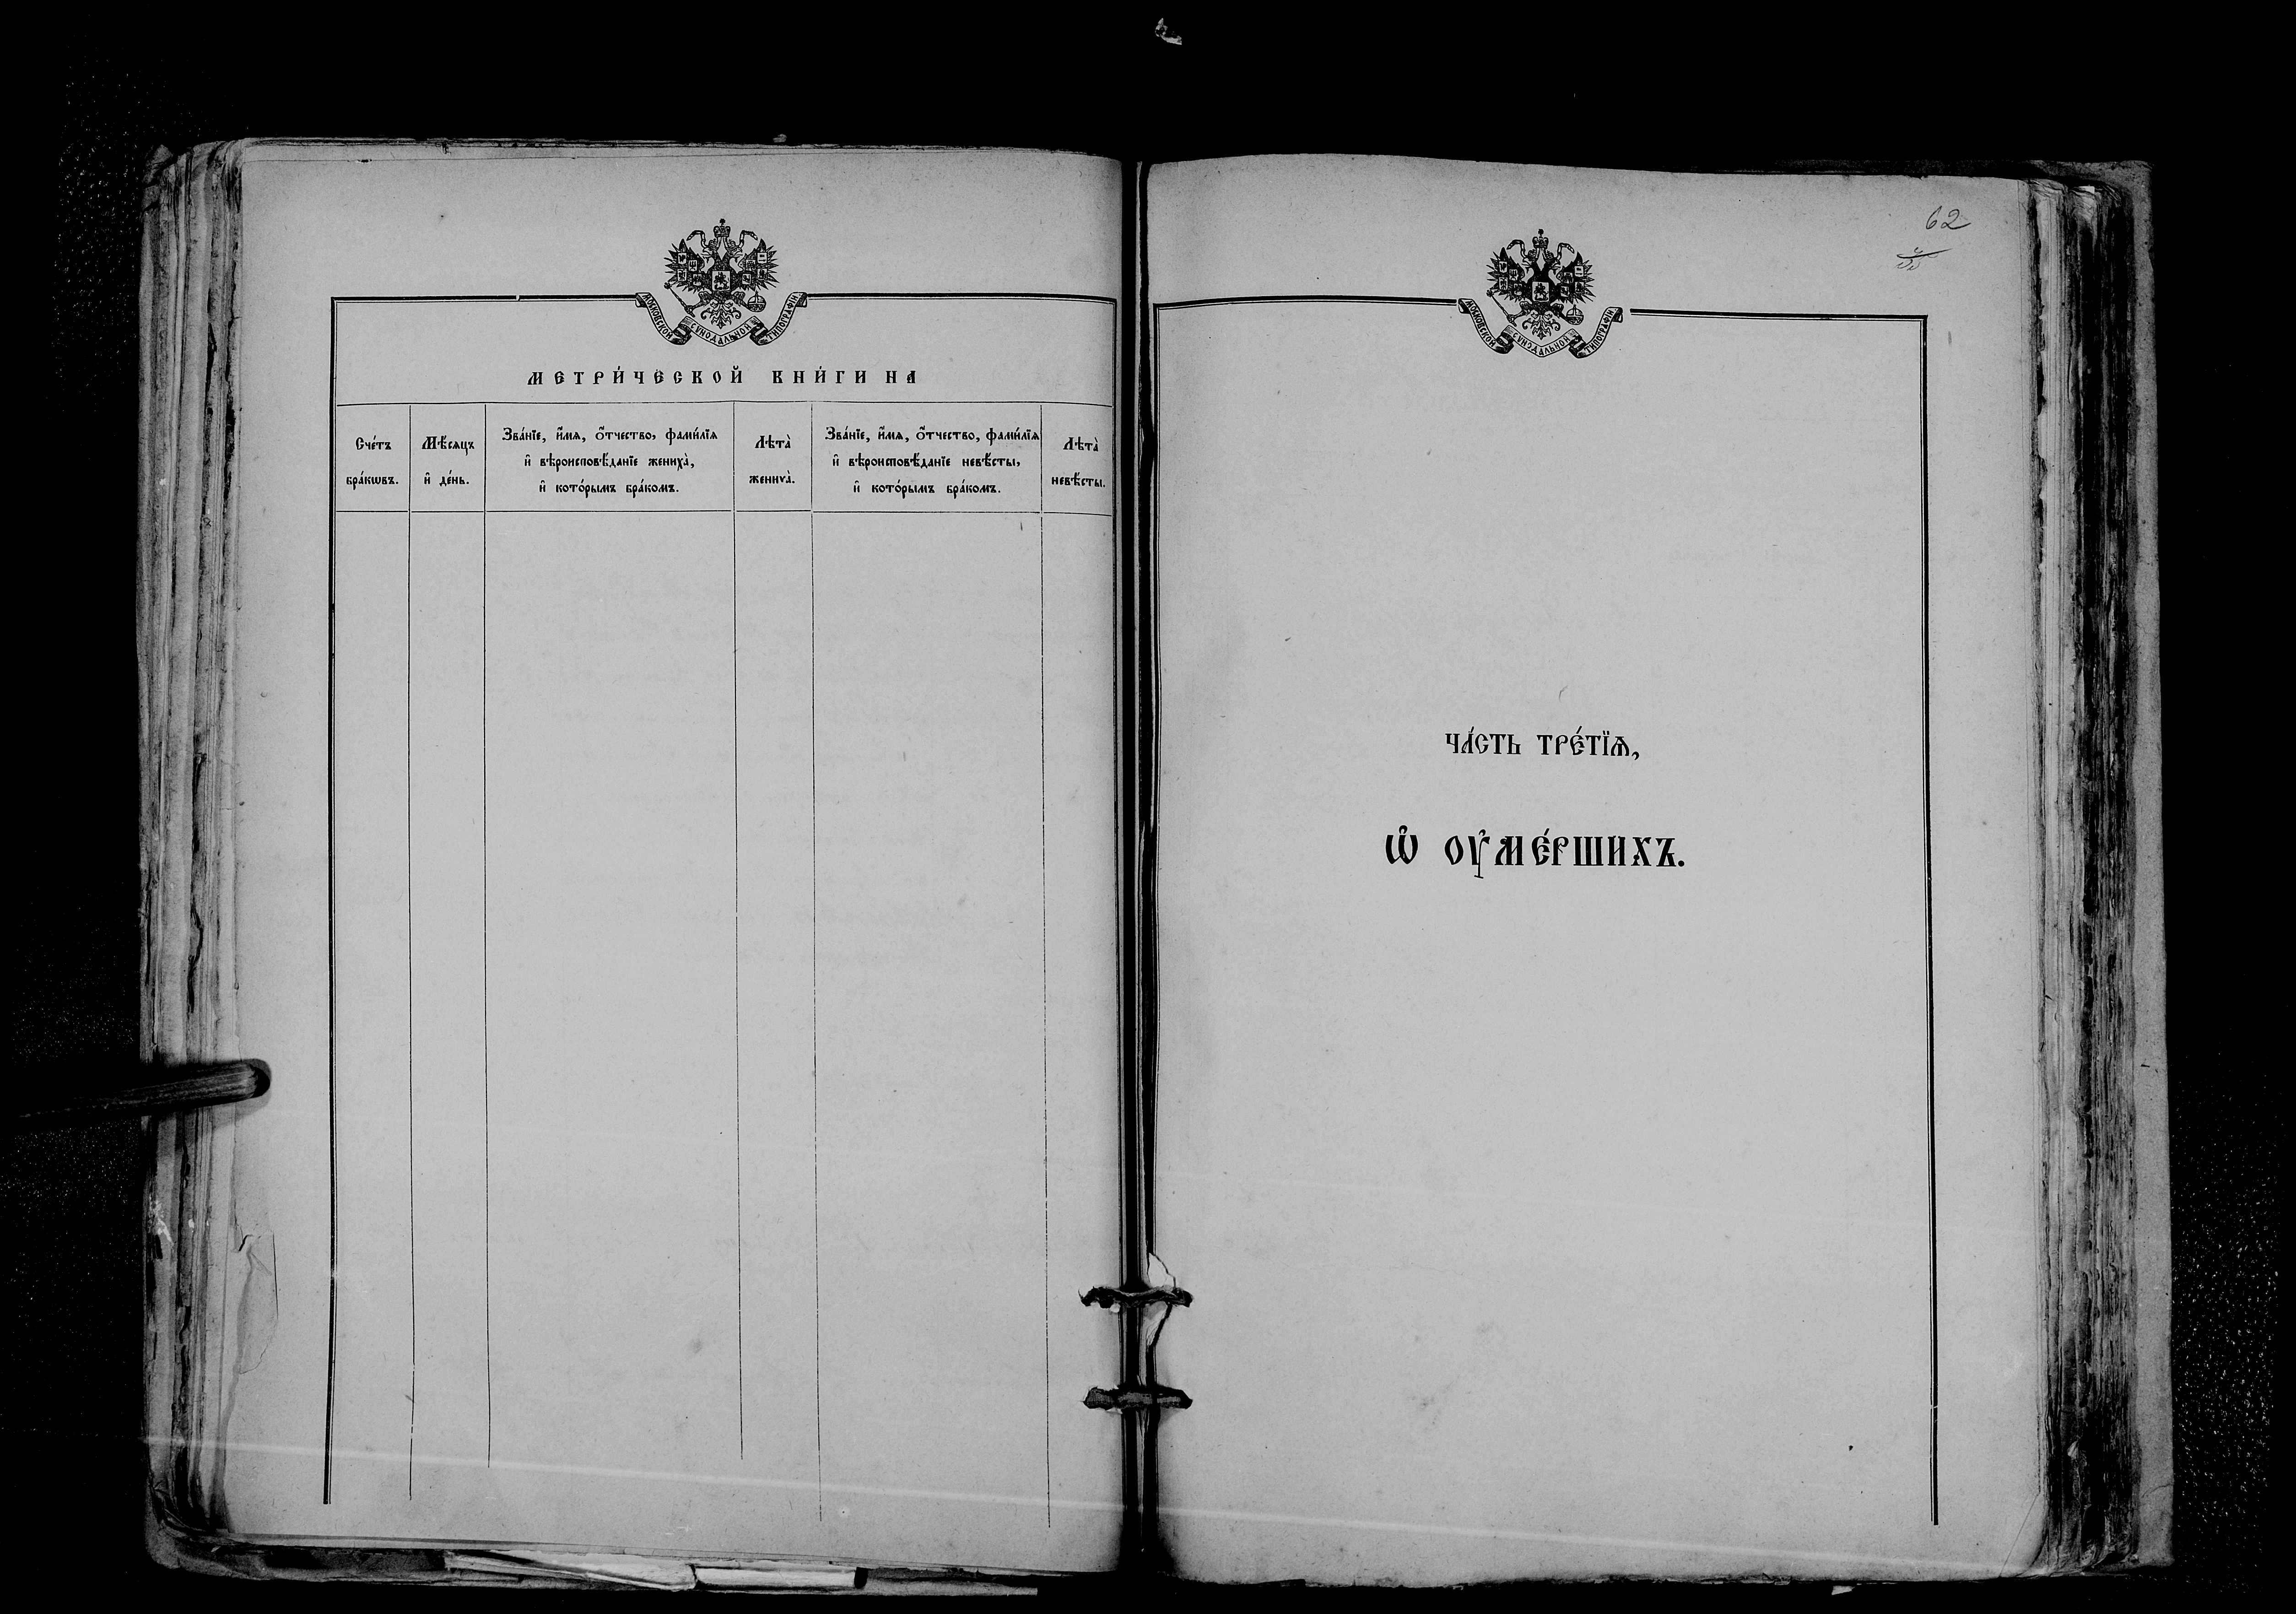 МОСКОВСКОЙ СѴНОДАЛЬНОЙ ТИПОГРАФІИ
МЕТРИ́ЧЕСКОЙ КНИ́ГИ НА
Сче́тъ
бра́кѡвъ.
Мѣ́сяцъ
и҆ де́нь.
Зва́нїе, и҆́мѧ, ѻ҆́тчество, фами́лїѧ
и҆ вѣроисповѣ́данїе жениха̀,
и҆ кото́рымъ бра́комъ.
Лѣта̀
жениха̀.
Зва́нїе, и҆́мѧ, ѻ҆́тчество, фами́лїѧ
и҆ вѣроисповѣ́данїе невѣ́сты,
и҆ кото́рымъ бра́комъ.
Лѣта̀
невѣ́сты.
62
МОСКОВСКОЙ СѴНОДАЛЬНОЙ ТИПОГРАФІИ
ЧА́СТЬ ТРЕ́ТЇѦ,
Ѡ҆ ОУ҆МЕ́РШИХЪ.